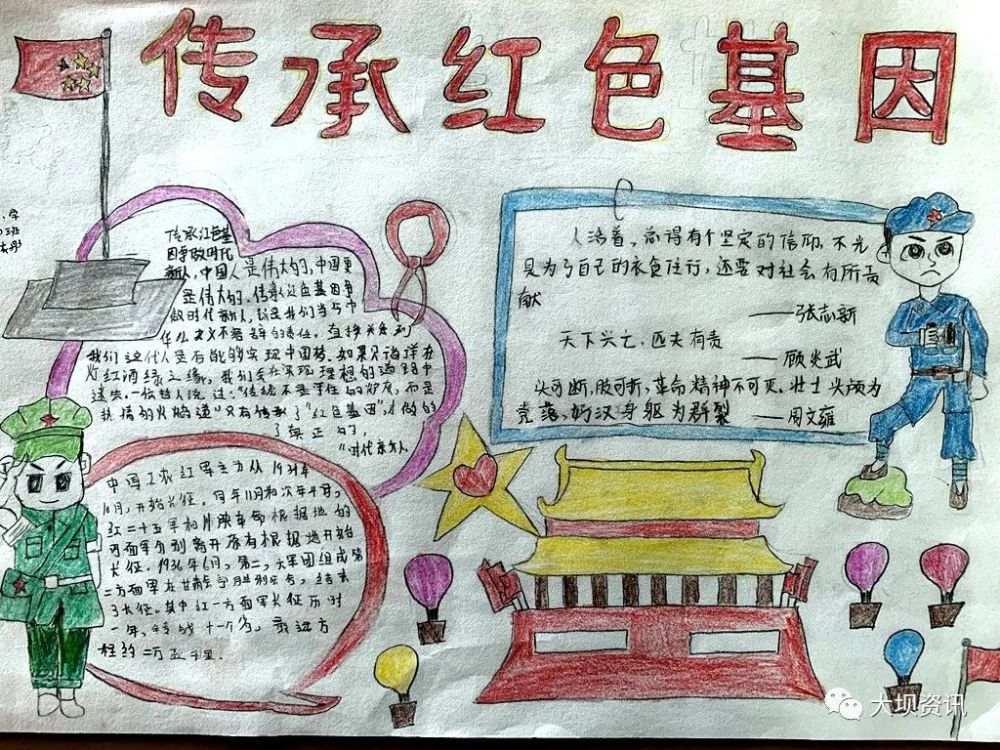 传承红色基因
传承红色基
因争做时代
新人,中国人是伟大的,中国更
是伟大的,传承红色基因争
做时代新人,
不容辞的责任。直接关系到
我们这代人是否能够实现中国梦。如果只徜徉在
灯红酒绿之缘,我们会在实现理想的道路中
迷失,一位哲人说过:“传统不是守住的炉灰,而是
热情的火焰
只有传承了“红色基因”,才做的
了真正的,
“时代新人
中国工农红军主力从1934年
10月,开始长征,同年11月和次年4月,
红二十五军和川陕革命根据地的
四方面军分别离开原有根据地开始
长征。1936年6月,第二,六军团组成第
二方面军
了长征。其中红一方面军长征历时
一年,转战十一个省,最远方
程约二万五千里.
人活着,总得有个坚定的信仰,不光
是为了自己的衣食住行,还要对社会有所贡
献
——张志新
天下兴亡,匹夫有责
——顾炎武
头可断,肢可折,革命精神不可灭。壮士头颅为
党落,好汉身躯为群裂 ——周文雍
大坝资讯